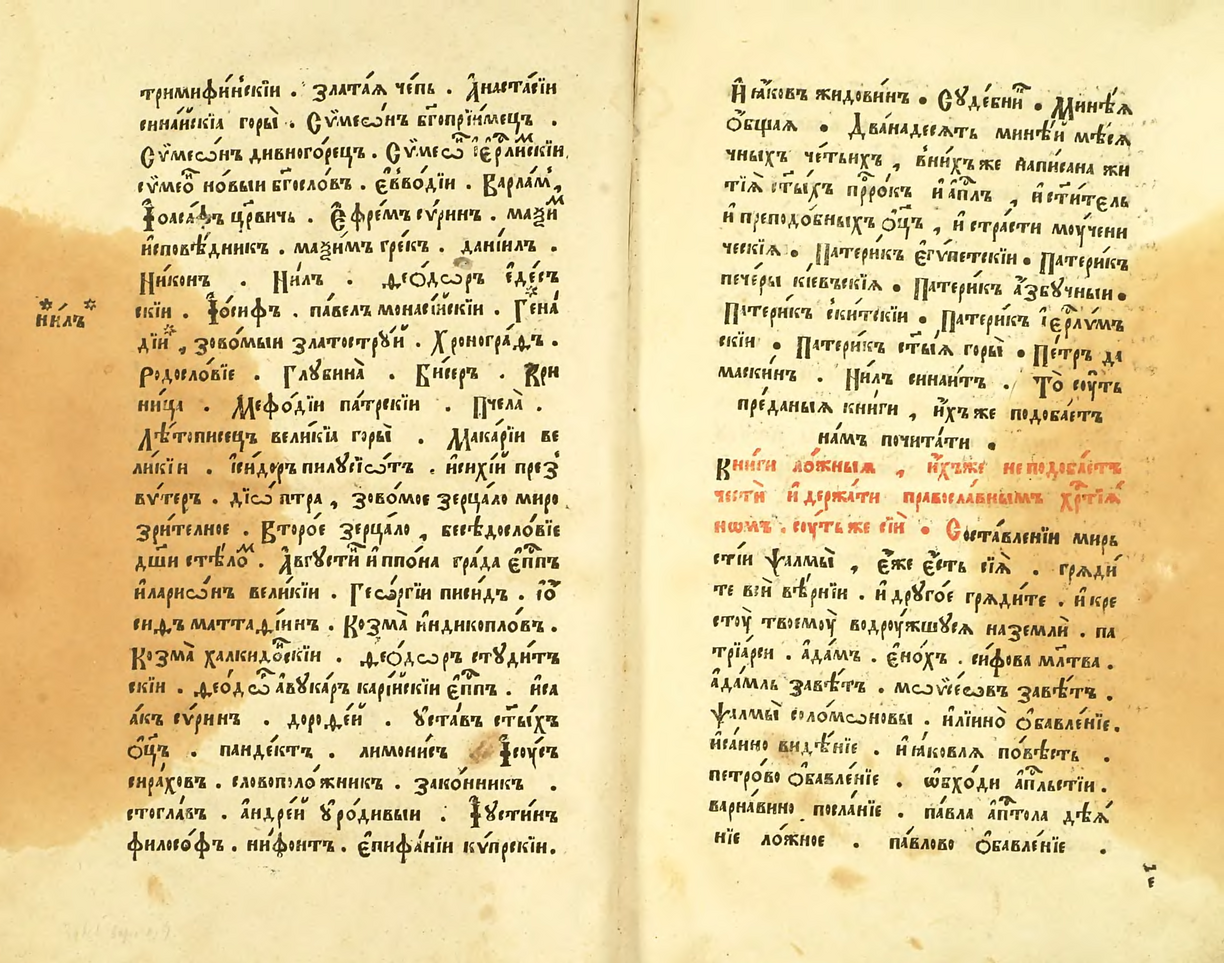 тримиѳи́нскїи . златаѧ чѣпь . Анастасїи
синаискїѧ горы̀ . Сѷмеѡ́нъ бг҃опрїимецъ .
Сѷмеѡнъ дивного́рецъ . Сѷмеѡⷩ҇ і҆ерⷭ҇лимскїи .
сѷмеѡⷩ҇ но́выи бг҃осло́въ . є҆ѵво́дїи . Варла́мъ ,
Іоаса́фъ цр҃вичь . Є҆фре́мъ сѵ́ринъ . маѯиⷨ
и҆сповѣ́дникъ . маѯи́мъ гре́къ . данїи́лъ .
Ни́конъ . Ни́лъ . Ѳео́дѡръ є҆де́съ
скїи . І҆о́сифъ . па́велъ монаси́искїи . Гена́
дїи , зово́мыи златострꙋ́й . Хроногра́фъ .
Родосло́вїе . Глꙋбина̀ . Би́серъ . Кри
ница . Меѳо́дїи па́трскїи . Пчела̀ .
Лѣтописецъ вели́кїѧ горы̀ . Мака́рїи ве
ли́кїи . і҆си́доръ пилꙋсїѡ́тъ . и҆си́хїй през̾
вѵ́теръ . дїѡ́птра , зово́мое зерца́ло миро
зри́телное . Второ́е зерца́ло , бесѣдосло́вїе
дш҃и стѣ́лоⷨ . А҆вгꙋсти́нъ и҆ппо́на гра́да є҆пⷭ҇пъ
и҆ларїѡ́нъ вели́кїи . Геѡ́ргїи писи́дъ . іѡ҆
сифъ маттаѳі́инъ . Козма̀ и҆ндикопло́въ .
Козма̀ халкидо́нскїи . Ѳео́дѡръ стꙋди́тъ
скїи . Ѳео́дѡⷬ҇ а҆вꙋка́ръ кари́искїи є҆пⷭ҇пъ . и҆са
а́къ сѵ́ринъ . дороѳе́й . ᲂу҆ста́въ ст҃ы́хъ
ѻ҆ц҃ъ . панде́ктъ . лимони́съ І҆сᲂу́съ
сира́ховъ . словополо́жникъ . зако́нникъ .
стогла́въ . а҆ндре́й ᲂу҆ро́дивыи . І҆ꙋсти́нъ
филосо́фъ . нифо́нтъ . Є҆пифа́нїи кѵ́прскїи .
ни́лъ
И҆ ꙗ҆́ковъ жидови́нъ . Сꙋде́бниⷦ҇ . Минѣ́ѧ
ѻ҆́бщаѧ . Двана́десѧть мине́й мѣсѧ
чныхъ че́тьихъ , вни́хъже напи́сана жи
тїѧ̀ ст҃ы́хъ прⷪ҇ро́къ и҆а҆пⷭ҇лъ , и҆ ст҃и́тель
и҆преподо́бныхъ ѻ҆ц҃ъ , и҆ стра́сти моу́чени
ческїѧ . Патери́къ є҆гѵ́петскїи . Патери́къ
пече́ры кі́евъскїѧ . Патери́къ а҆́збꙋчныи .
Патери́къ ски́тскїи . Патери́къ і҆ерⷭ҇ли́мъ
скїи . Патери́къ ст҃ы́ѧ горы̀ . Пе́тръ да
маски́нъ . Ни́лъ синаи́тъ . То̀ соу́ть
пре́даныѧ кни́ги , и҆́хъже подоба́етъ
на́мъ почита́ти .
Кни́ги ло́жныѧ , и҆́хъже не подоба́етъ
честѝ и҆ держа́ти правосла́внымъ хрⷭ҇тїѧ́
номъ . соу́тьже сїѝ . Соста́вленїи мирь
сті́и ѱалмы̀ , є҆́же є҆́сть сїѧ̀ . грѧди́
те всѝ вѣ́рнїи . и҆ друго́е грѧди́те . и҆ кре
стоу̀ твоемоу̀ водроу́жшꙋсѧ на землѝ . па
трїа́рси . а҆да́мъ . є҆но́хъ . си́фова мл҃тва .
а҆да́мль завѣ́тъ . мѡѷсе́овъ завѣ́тъ .
ѱалмы̀ соломѡновы . и҆лїи́но ѻ҆бавле́нїе .
и҆са́ино видѣ́нїе . и҆ ꙗ҆́ковлѧ по́вѣсть .
петро́во ѻ҆бавле́нїе . ѡ҆бхо́ди а҆пⷭ҇льстїи .
варна́вино посла́нїе . па́вла а҆пⷭ҇тола дѣѧ́
нїе ло́жное . па́влово ѻ҆бавле́нїе .
є҃